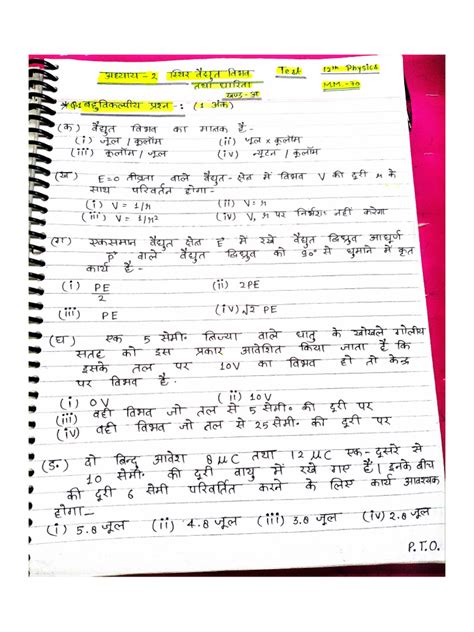 अध्याय - 2 स्थिर वैद्युत विभव Test 12th Physics
तथा धारिता M.M.-70
खण्ड-अ
*Q1 बहुविकल्पीय प्रश्न -: (1 अंक)
(क) वैद्युत विभव का मानक है -
(i) जूल / कूलॉम (ii) जूल x कूलॉम
(iii) कूलॉम / जूल (iv) न्यूटन / कूलॉम
(ख) E=0 तीव्रता वाले वैद्युत-क्षेत्र में विभव V का दूरी r के
साथ परिवर्तन होगा -
(i) V = 1/r (ii) V = r
(iii) V = 1/r² (iv) V, r पर निर्भर नहीं करेगा
(ग) एकसमान वैद्युत क्षेत्र E में रखे वैद्युत द्विध्रुव आघूर्ण
P वाले वैद्युत द्विध्रुव को 90° से घुमाने में कृत
कार्य है -
(i) PE/2 (ii) 2PE
(iii) PE (iv) √2 PE
(घ) एक 5 सेमी० त्रिज्या वाले धातु के खोखले गोलीय
सतह को इस प्रकार आवेशित किया जाता है कि
इसके तल पर 10V का विभव हो तो केन्द्र
पर विभव है.
(i) 0V (ii) 10V
(iii) वही विभव जो तल से 5 सेमी० की दूरी पर
(iv) वही विभव जो तल से 25 सेमी० की दूरी पर
(ड.) दो बिन्दु आवेश 8 μC तथा 12 μC एक-दूसरे से
10 सेमी० की दूरी वायु में रखे गए हैं। इनके बीच
की दूरी 6 सेमी परिवर्तित करने के लिए कार्य आवश्यक
होगा—
(i) 5.8 जूल (ii) 4.8 जूल (iii) 3.8 जूल (iv) 2.8 जूल
P.T.O.